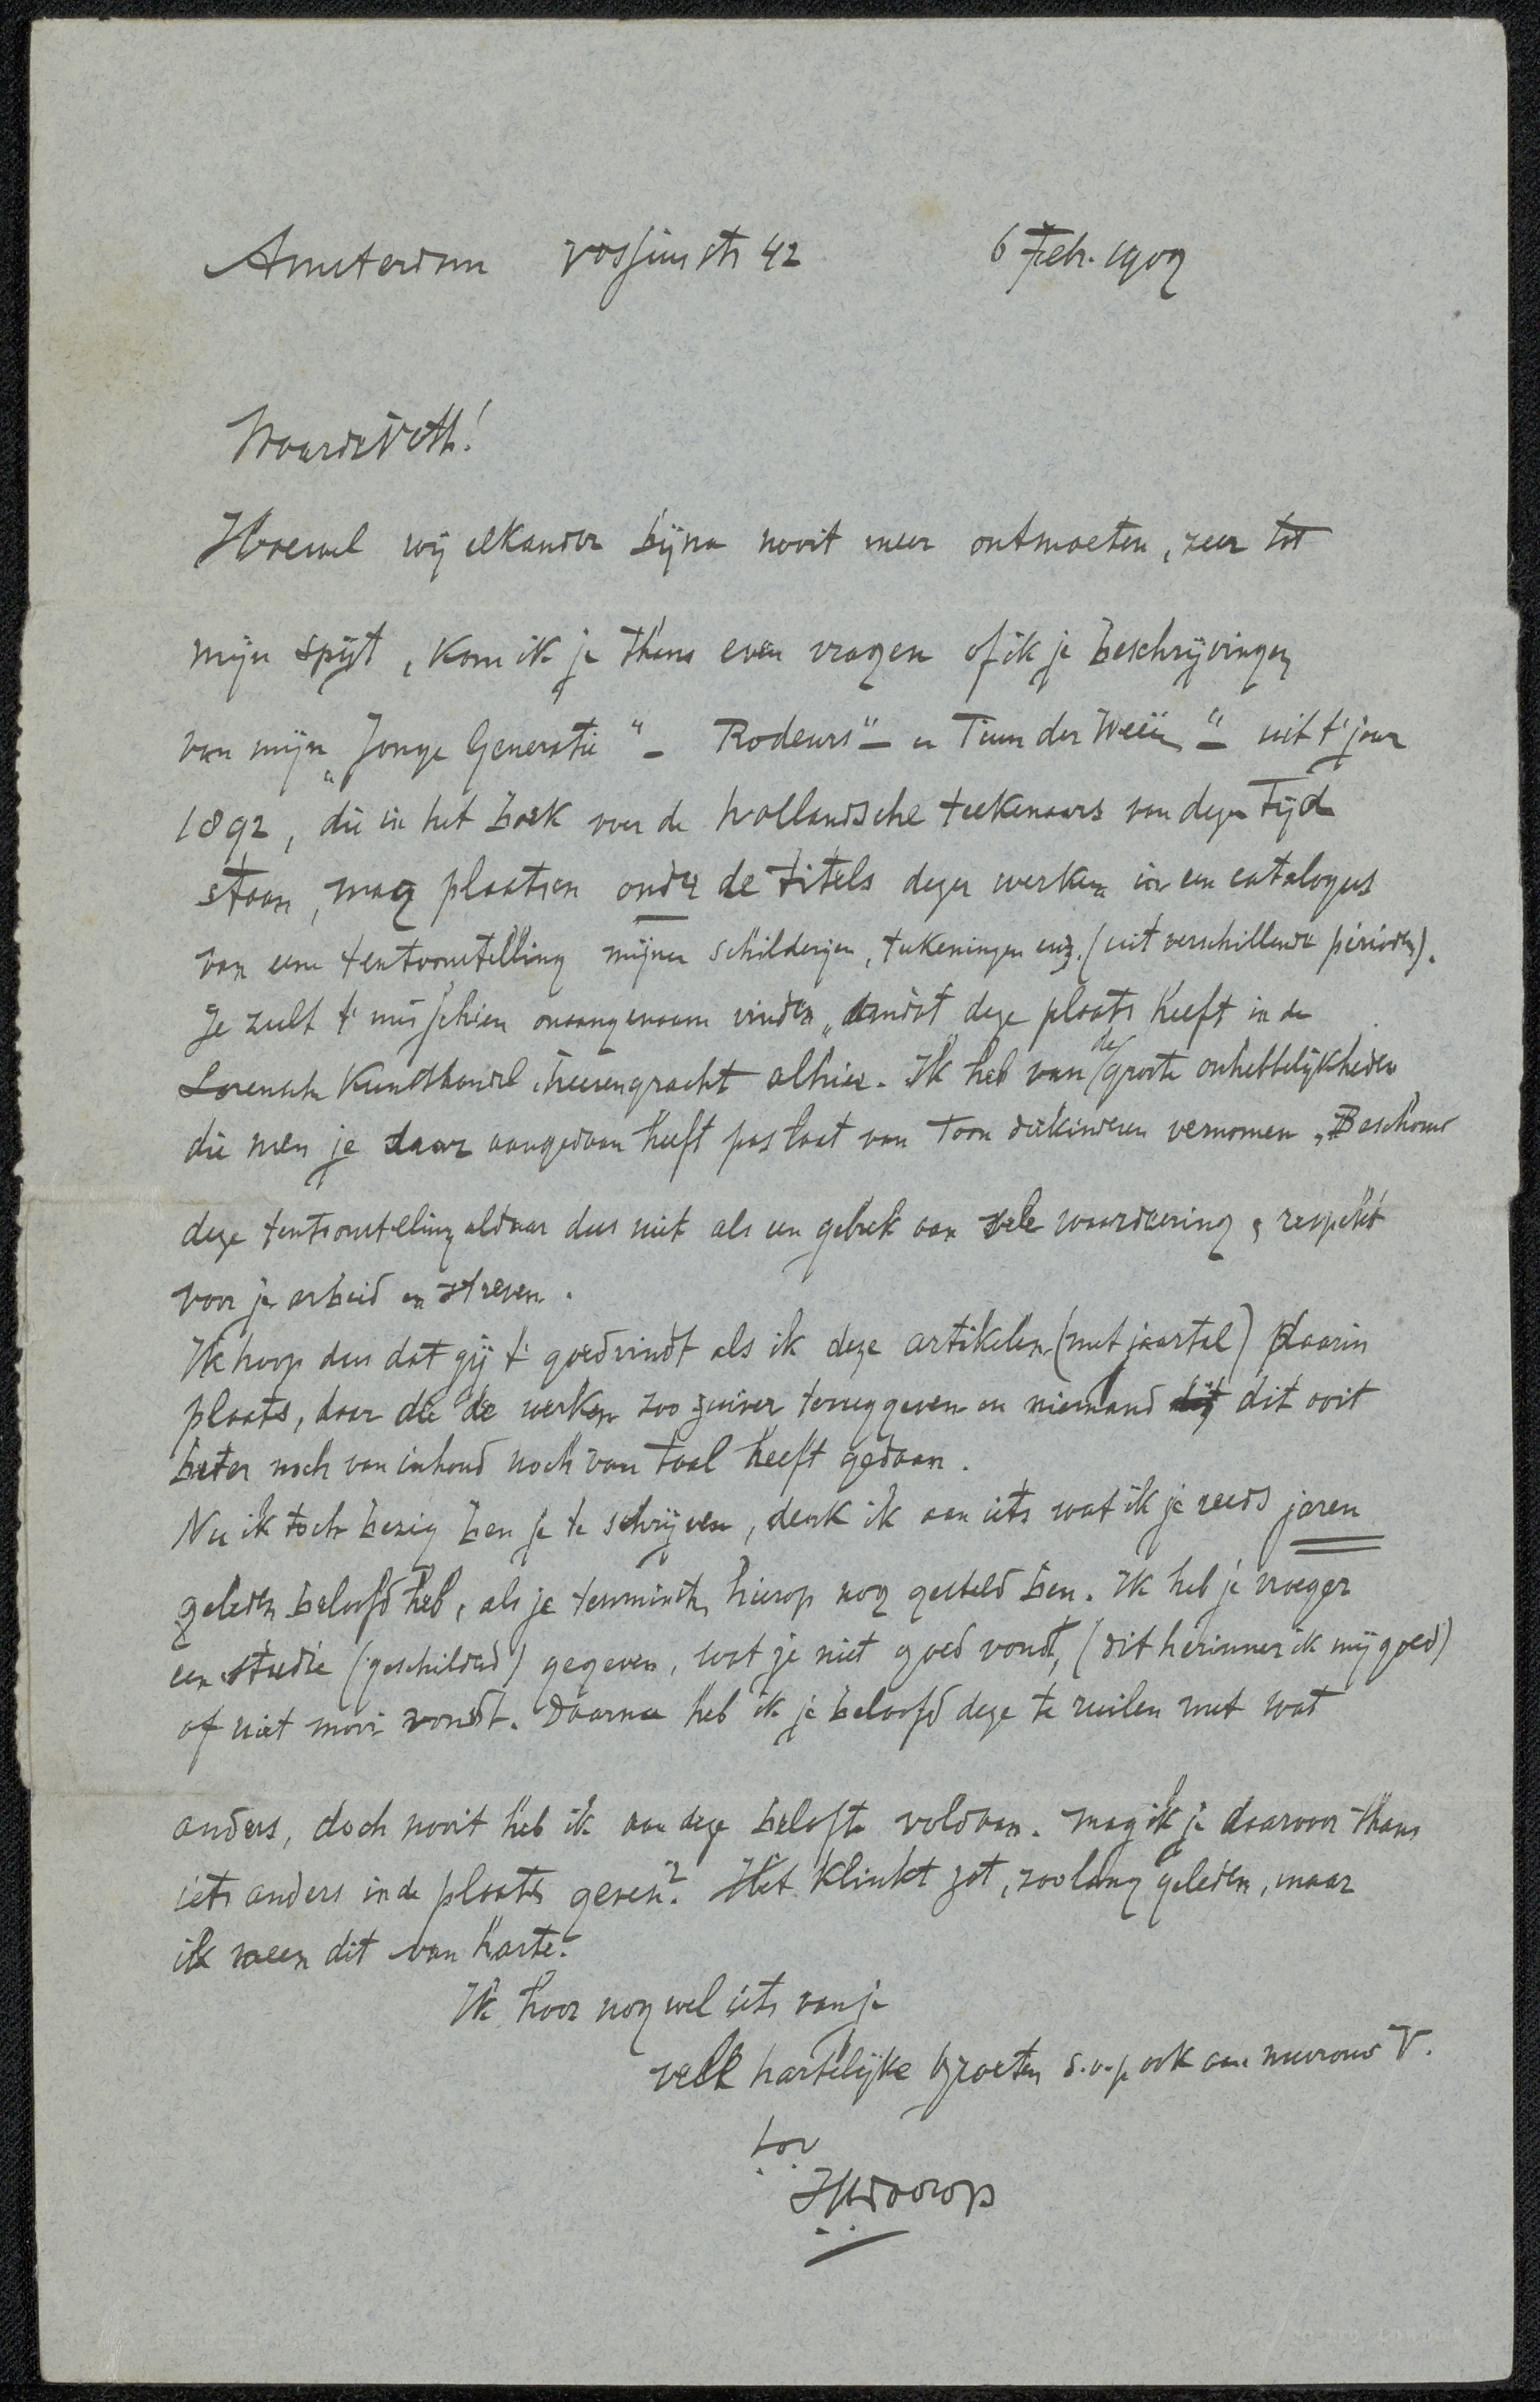 Amsterdam Vossiusstr 42 6 Feb. 1909
Waarde Veth!
Hoewel wij elkander bijna nooit meer ontmoeten, zeer tot
mijn spijt, kom ik je thans even vragen of ik je beschrijvingen
van mijn „Jonge Generatie" – Rodeurs" – en Tuin der Weeën" – uit t' jaar
1892, die in het boek over de hollandsche teekenaars van dezen Tijd
staan, mag plaatsen onder de titels dezer werken in een catalogus
van eene tentoonstelling mijner schilderijen, teekeningen enz. (uit verschillende perioden).
Je zult t' misschien onaangenaam vinden, omdat deze plaats heeft in de
Larensche Kunsthandel Heerengracht alhier. Ik heb van de groote onhebbelijkheden
die men je daar aangedaan heeft pas laat van Toon dekinderen vernomen. Beschouw
deze tentoonstelling aldaar dus niet als een gebrek aan vele waardeering & respekt
voor je arbeid en streven.
Ik hoop dus dat gij t' goedvindt als ik deze artikelen (met jaartal) daarin
plaats, daar die de werken zoo zuiver teruggeven en niemand dit ooit
beter noch van inhoud noch van taal heeft gedaan.
Nu ik toch bezig ben je te schrijven, denk ik aan iets wat ik je reeds jaren
geleden beloofd heb, als je tenminste hierop nog gesteld ben. Ik heb je vroeger
een studie (geschilderd) gegeven, wat je niet goed vondt, (dit herinner ik mij goed)
of niet mooi vondt. Daarna heb ik je beloofd deze te ruilen met wat
anders, doch nooit heb ik aan deze belofte voldaan. Mag ik je daarvoor thans
iets anders in de plaats geven? Het klinkt zot, zoolang geleden, maar
ik meen dit van harte.
Ik hoor nog wel iets van je
vele hartelijke groeten s.v.p ook aan mevrouw V.
tov
JThToorop